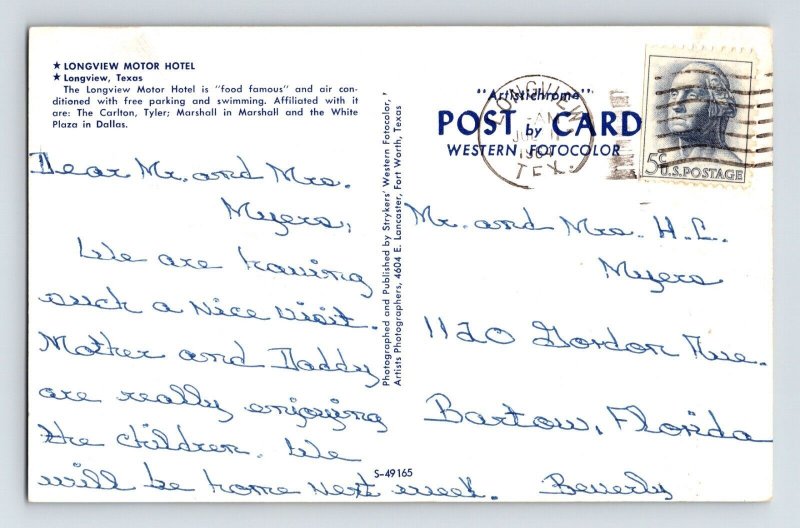 ★ LONGVIEW MOTOR HOTEL
★ Longview, Texas
The Longview Motor Hotel is "food famous" and air con-
ditioned with free parking and swimming. Affiliated with it
are: The Carlton, Tyler; Marshall in Marshall and the White
Plaza in Dallas.
Dear Mr. and Mrs.
Myers,
We are having
such a nice visit.
Mother and Daddy
are really enjoying
the children. We
will be home next week.
Beverly
Photographed and Published by Strykers' Western Fotocolor,
Artists Photographers, 4604 E. Lancaster, Fort Worth, Texas
S-49165
"Artistichrome"
POST by CARD
WESTERN FOTOCOLOR
LONGVIEW
AM
TEX.
5¢
U.S. POSTAGE
Mr. and Mrs. H.L.
Myers
1120 Gordon Ave.
Bartow, Florida